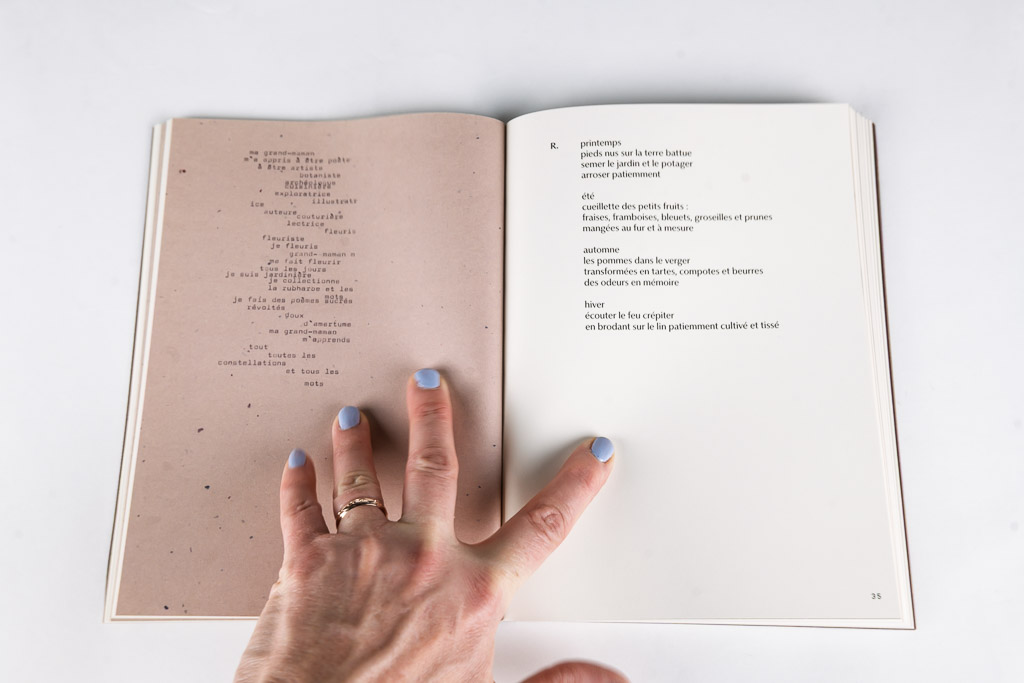 ma grand-maman
m'a appris à être poète
à être artiste
botaniste
archéologue
cuisinière
exploratrice
illustratr
ice
auteure
couturière
lectrice
fleuris
fleuriste
je fleuris
grand- maman m
me fait fleurir
tous les jours
je suis jardinière
je collectionne
la rubharbe et les
mots
je fais des poèmes sucrés
révoltés
doux
d'amertume
ma grand-maman
m'apprends
tout
toutes les
constellations
et tous les
mots
R. printemps
pieds nus sur la terre battue
semer le jardin et le potager
arroser patiemment
été
cueillette des petits fruits :
fraises, framboises, bleuets, groseilles et prunes
mangées au fur et à mesure
automne
les pommes dans le verger
transformées en tartes, compotes et beurres
des odeurs en mémoire
hiver
écouter le feu crépiter
en brodant sur le lin patiemment cultivé et tissé
35